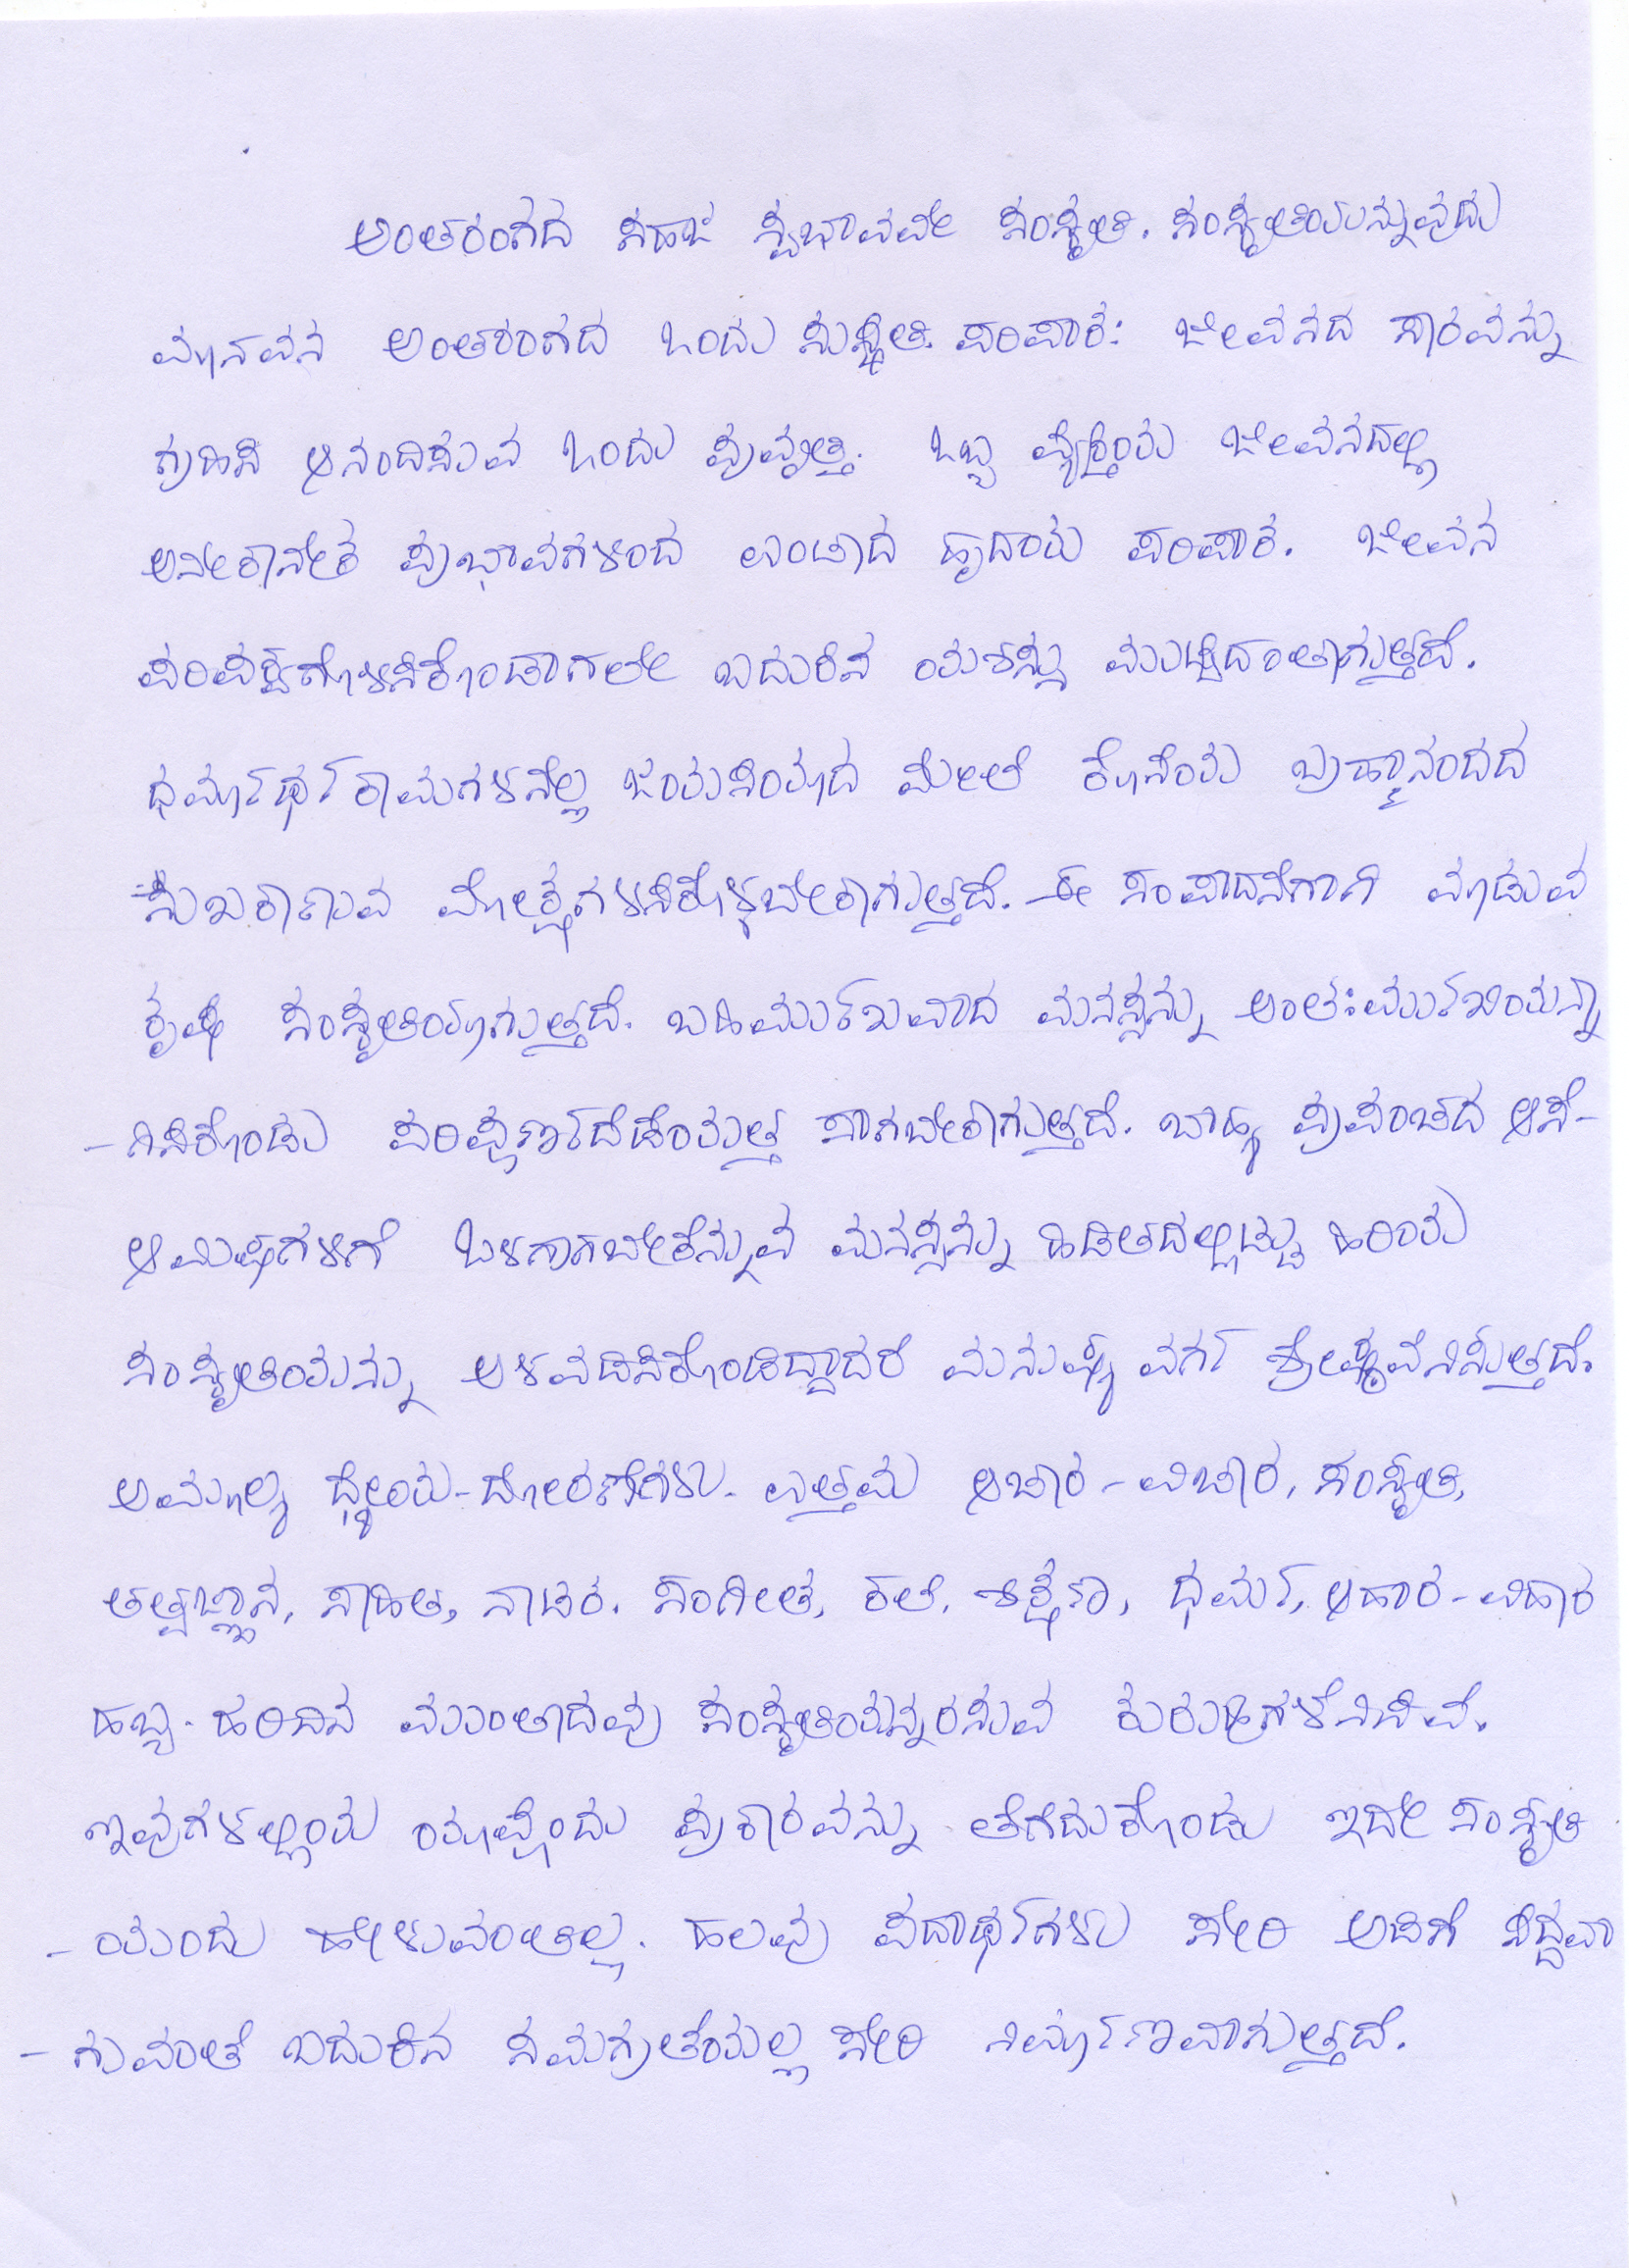 ಅಂತರಂಗದ ಸಹಜ ಸ್ವಭಾವವೇ ಸಂಸ್ಕೃತಿ. ಸಂಸ್ಕೃತಿಯನ್ನುವುದು
ಮಾನವನ ಅಂತರಂಗದ ಒಂದು ಸುಸ್ಥಿತಿ. ಪರಿಪಾಕ: ಜೀವನದ ಸಾರವನ್ನು
ಗ್ರಹಿಸಿ ಆನಂದಿಸುವ ಒಂದು ಪ್ರವೃತ್ತಿ. ಒಬ್ಬ ವ್ಯಕ್ತಿಯ ಜೀವನದಲ್ಲಿ
ಅನೇಕಾನೇಕ ಪ್ರಭಾವಗಳಿಂದ ಉಂಟಾದ ಹೃದಯ ಪರಿಪಾಕ. ಜೀವನ
ಪರಿಪಕ್ವಗೊಳಿಸಿಕೊಂಡಾಗಲೇ ಬದುಕಿನ ಯಶಸ್ಸು ಮುಟ್ಟಿದಂತಾಗುತ್ತದೆ.
ಧರ್ಮಾರ್ಥಕಾಮಗಳನೆಲ್ಲ ಜಯಸಿಯಾದ ಮೇಲೆ ಕೊನೆಯ ಬ್ರಹ್ಮಾನಂದದ
ಸುಖಕಾಣುವ ಮೋಕ್ಷಗಳಿಸಿಕೊಳ್ಳಬೇಕಾಗುತ್ತದೆ. ಈ ಸಂಪಾದನೆಗಾಗಿ ಮಾಡುವ
ಕೃಷಿ ಸಂಸ್ಕೃತಿಯಾಗುತ್ತದೆ. ಬಹಿರ್ಮುಖವಾದ ಮನಸ್ಸನ್ನು ಅಂತಃರ್ಮುಖಿಯನ್ನಾ
-ಗಿಸಿಕೊಂಡು ಪರಿಪೂರ್ಣದೆಡೆಯತ್ತ ಸಾಗಬೇಕಾಗುತ್ತದೆ. ಬಾಹ್ಯ ಪ್ರಪಂಚದ ಆಸೆ-
ಆಮಿಷಗಳಿಗೆ ಒಳಗಾಗಬೇಕೆನ್ನುವ ಮನಸ್ಸನ್ನು ಹಿಡಿತದಲ್ಲಿಟ್ಟು ಹಿರಿಯ
ಸಂಸ್ಕೃತಿಯನ್ನು ಅಳವಡಿಸಿಕೊಂಡಿದ್ದಾದರೆ ಮನುಷ್ಯ ವರ್ಗ ಶ್ರೇಷ್ಠವೆನಿಸುತ್ತದೆ.
ಅಮೂಲ್ಯ ಧ್ಯೇಯ-ದೋರಣೆಗಳು. ಉತ್ತಮ ಆಚಾರ-ವಿಚಾರ, ಸಂಸ್ಕೃತಿ,
ತತ್ವಜ್ಞಾನ, ಸಾಹಿತ್ಯ, ನಾಟಕ. ಸಂಗೀತ, ಕಲೆ. ಶಿಕ್ಷಣ, ಧರ್ಮ, ಆಹಾರ-ವಿಹಾರ
ಹಬ್ಬ-ಹರಿದಿನ ಮುಂತಾದವು ಸಂಸ್ಕೃತಿಯನ್ನರಸುವ ಕುರುಹುಗಳೆನಿಸಿವೆ.
ಇವುಗಳಲ್ಲಿಯ ಯಾವೊಂದು ಪ್ರಕಾರವನ್ನು ತೆಗೆದುಕೊಂಡು ಇದೇ ಸಂಸ್ಕೃತಿ
-ಯೆಂದು ಹೇಳುವಂತಿಲ್ಲ. ಹಲವು ಪದಾರ್ಥಗಳು ಸೇರಿ ಅಡಿಗೆ ಸಿದ್ಧವಾ
-ಗುವಂತೆ ಬದುಕಿನ ಸಮಗ್ರತೆಯೆಲ್ಲ ಸೇರಿ ನಿರ್ಮಾಣವಾಗುತ್ತದೆ.